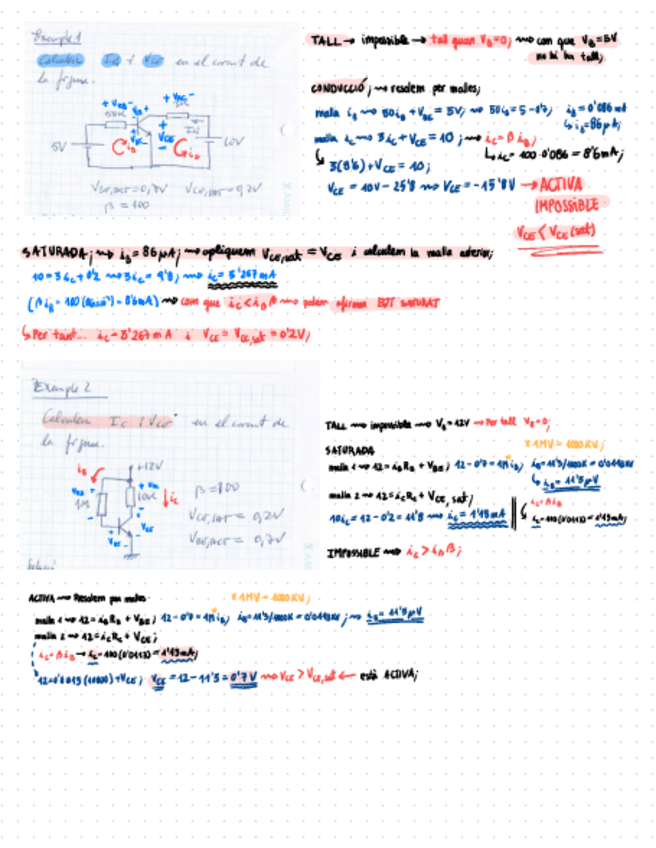 Example 1
Calculeu Ic i VCE en el circuit de
la figura.
+ VRB - + VRC -
50K 3K
5V iB VCE ic 10V
VBE,ACT = 0,7V VCE,SAT = 0,2V
β = 100
TALL → impossible → tall quan VB=0; com que VB=5V
no hi ha tall;
CONDUCCIÓ; resolem per malles;
malla iB 50iB + VBE = 5V; 50iB = 5 - 0'7; iB = 0'086 mA
↳ iB = 86 μA;
malla ic 3ic + VCE = 10; ic = β iB;
↳ ic = 100·0'086 = 8'6 mA;
3(8'6) + VCE = 10;
VCE = 10V - 25'8 VCE = -15'8V → ACTIVA
IMPOSSIBLE
VCE < VCE(sat)
SATURADA; iB = 86 μA; apliquem VCE,sat = VCE i calculem la malla anterior;
10 = 3ic + 0'2 3ic = 9'8; ic = 3'267 mA
com que ic < iB β podem afirmar BJT SATURAT
↳ Per tant... ic = 3'267 mA i VCE = VCE,sat = 0'2V;
Example 2
Calculeu Ic i VCE en el circuit de
la figura.
+12V
iB
1M 10K ic
VCE
VBE
β = 100
VCE,SAT = 0,2V
VBE,ACT = 0,7V
TALL impossible VB = 12V → Per tall VB=0;
SATURADA
* 1MV = 1000KV;
malla 1 12 = iB RB + VBE; 12 - 0'7 = 1M iB; iB = 11'3/1000K = 0'0113KV
↳ iB = 11'3 μV
malla 2 12 = ic Rc + VCE,sat;
ic = β iB
10ic = 12 - 0'2 = 11'8 ic = 1'18 mA ↳ ic = 100(0'0113) = 1'13 mA;
IMPOSSIBLE ic > iB β;
ACTIVA Resolem per malles
* 1MV = 1000KV;
malla 1 12 = iB RB + VBE; 12 - 0'7 = 1M iB; iB = 11'3/1000K = 0'0113KV; iB = 11'3 μV
malla 2 12 = ic Rc + VCE;
ic = β iB → ic = 100(0'0113) = 1'13 mA;
VCE = 12 - 11'3 = 0'7 V VCE > VCE,sat ← està ACTIVA;